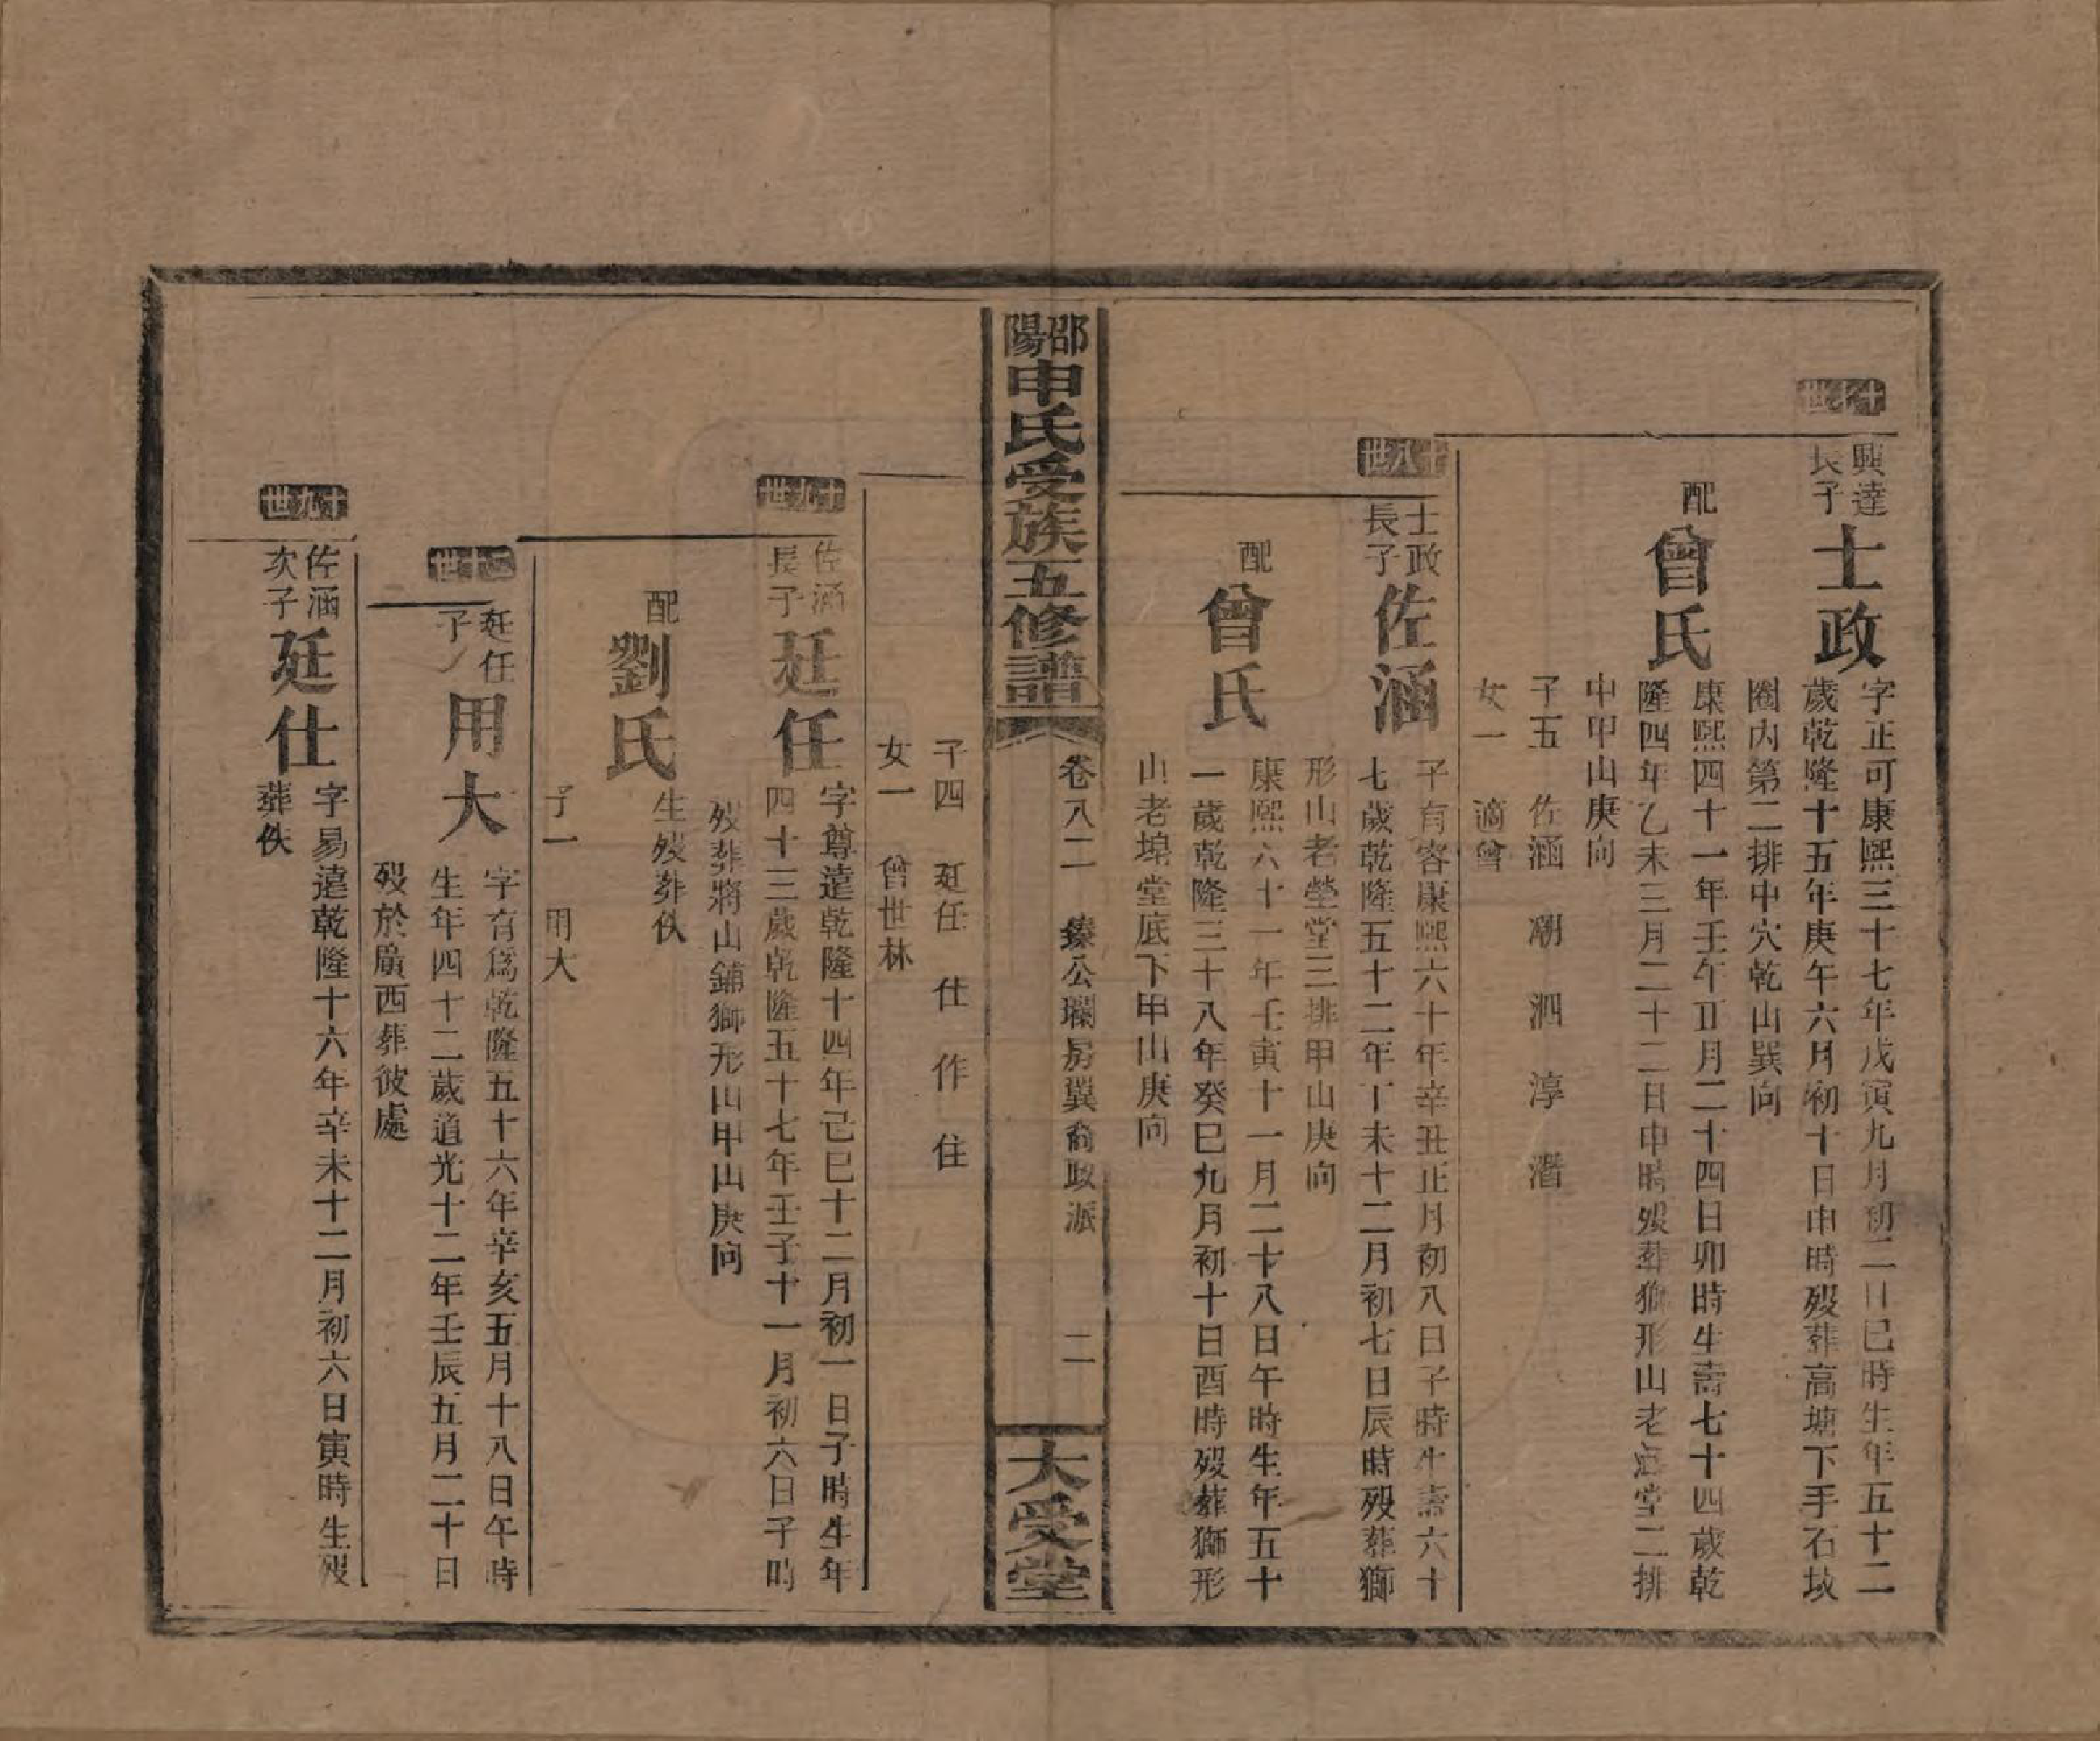 十七世
興達
長子
士政
字正可康熙三十七年戊寅九月初二日巳時生年五十二
歲乾隆十五年庚午六月初十日申時歿葬高塘下手石坡
圈內第二排中穴乾山巽向
配
曾氏
康熙四十一年壬午正月二十四日卯時生壽七十四歲乾
隆四年乙未三月二十二日申時歿葬獅形山老塋堂二排
中甲山庚向
子五 佐涵 潮 泗 淳 潛
女一 適曾
十八世
士政
長子
佐涵
字有容康熙六十年辛丑正月初八日子時生壽六十
七歲乾隆五十二年丁未十二月初七日辰時歿葬獅
形山老塋堂三排甲山庚向
配
曾氏
康熙六十一年壬寅十一月二十八日午時生年五十
一歲乾隆三十八年癸巳九月初十日酉時歿葬獅形
山老塋堂底下甲山庚向
邵陽申氏受族五修譜
卷八二 公瓓房翼裔政派 二
大受堂
子四 廷任 仕 作 住
女一 曾世林
十九世
佐涵
長子
廷任
字尊遠乾隆十四年己巳十二月初一日子時生年
四十三歲乾隆五十七年壬子十一月初六日子時
歿葬將山鋪獅形山甲山庚向
配
劉氏
生歿葬佚
子一 用大
二十世
廷任
子
用大
字有爲乾隆五十六年辛亥五月十八日午時
生年四十二歲道光十二年壬辰五月二十日
歿於廣西葬彼處
十九世
佐涵
次子
廷仕
字易遠乾隆十六年辛未十二月初六日寅時生歿
葬佚